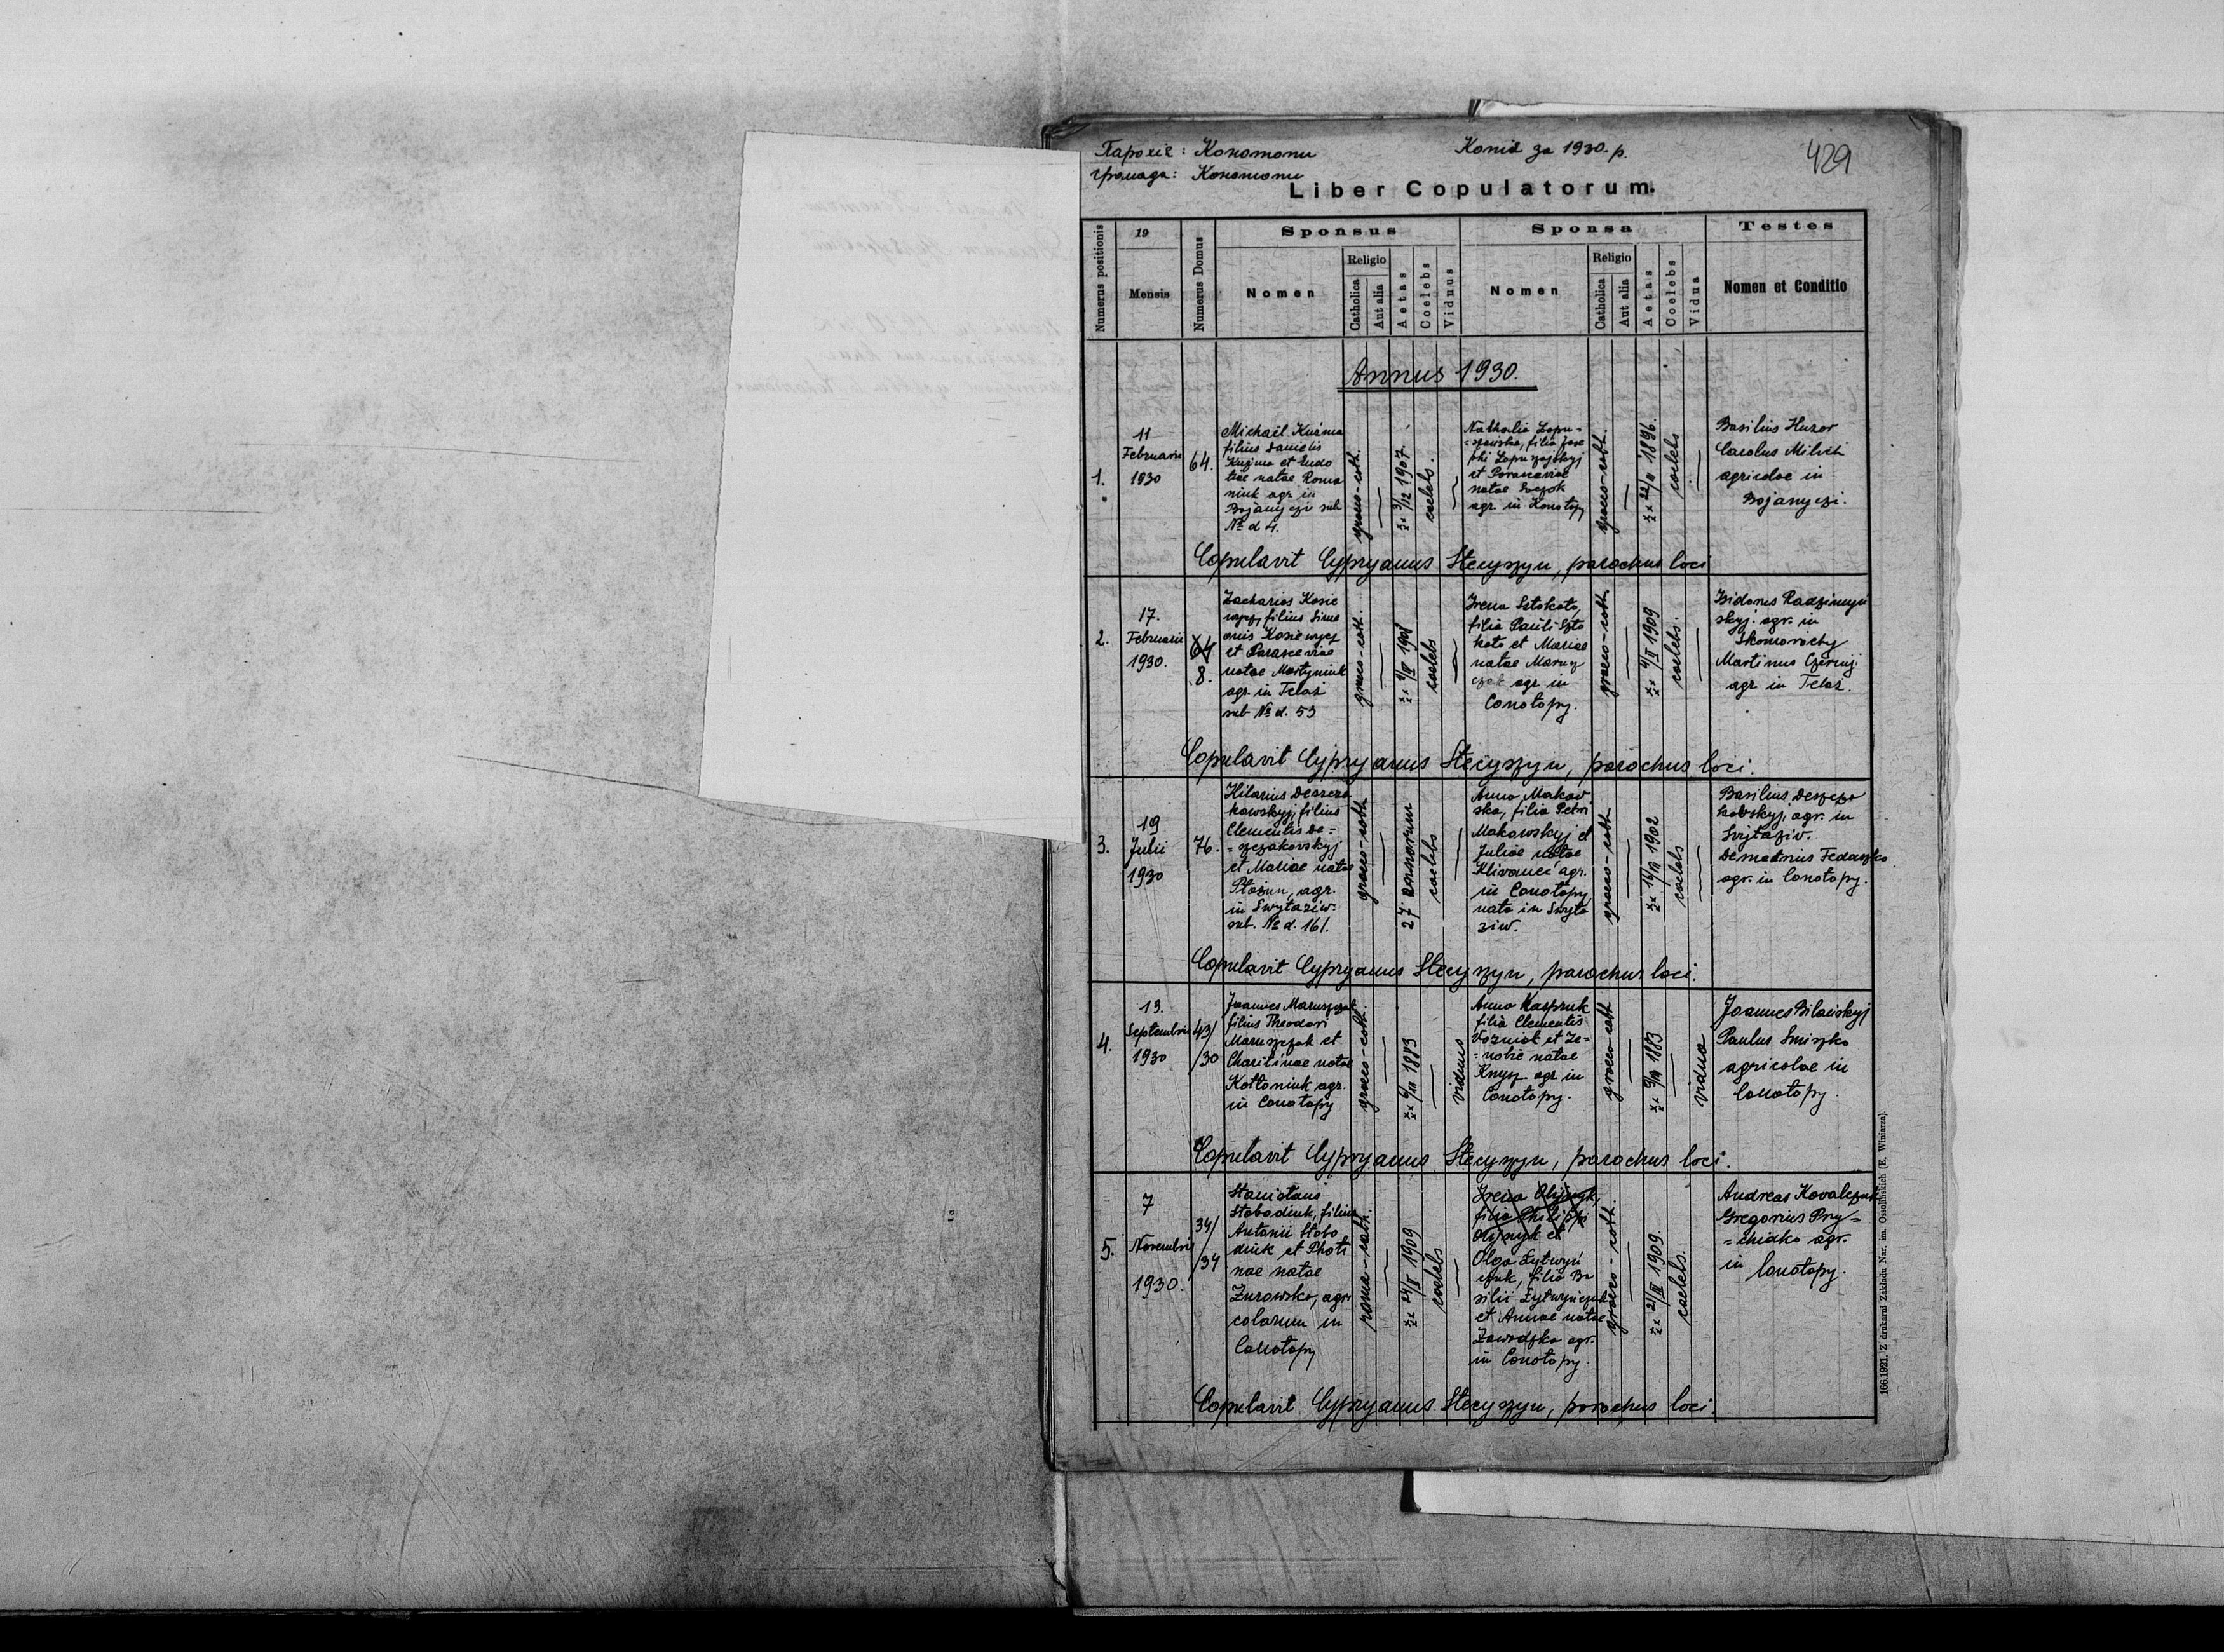 Парохія: Конотопи
Копія за 1930. р.
429
громада: Конотопи
Liber Copulatorum.
Numerus positionis
19
Mensis
Numerus Domus
Sponsus
Nomen
Religio
Catholica
Aut alia
Aetas
Coelebs
Viduus
Sponsa
Nomen
Religio
Catholica
Aut alia
Aetas
Coelebs
Vidua
Testes
Nomen et Conditio
Annus 1930.
1.
11
Februarii
1930
64.
Michaël Kuźma
filius Danielis
Kuźma et Eudo
tiae natae Roma
niuk agr. in
Bojanyczi sub
№ d 4.
graeco-cath.
3/12 1907.
coelebs.
Nathalia Lopu-
=szańska, filia Jose
phi Lopuszajskyj
et Parasceviae
natae
agr. in Konotopy
graeco-cath.
22/ 1896.
coelebs
Basilius Huzar
Carolus Milich
agricolae in
Bojanyczi.
Copulavit Cypryanus Stecyszyn, parochus loci
2.
17.
Februarii
1930.
64
8.
Zacharias Kosie
wycz, filius Sime
onis Kosiewycz
et Parasceviae
natae Martyniuk
agr. in Telaż
sub № d. 53
graeco-cath.
1908
coelebs
Irena Sztokało,
filia Pauli Szto
kało et Mariae
natae Marusz
czak agr in
Conotopy.
graeco-cath.
4/II 1909
coelebs.
Isidorus Radzimyń
skyj. agr. in
Skomorochy
Martinus Czernij
agr. in Telaż.
Copulavit Cypryanus Stecyszyn, parochus loci.
3.
19
Julii
1930
76.
Hilarius Deszcza
kowskyj, filius
Clementis De=
=szczakovskyj
et Mariae natae
agr.
in Swytaziw
sub. № d. 161.
graeco-cath.
27 annorum
coelebs
Anna Makow
ska, filia Petri
Makowskyj et
Juliae natae
Klivaneć agr.
in Conotopy
nata in Swyta
ziw.
graeco-cath.
1902
coelebs
Basilius Deszcza
kovskyj, agr. in
Swytaziw.
Demetrius Fedaszko
agr. in Conotopy.
Copulavit Cypryanus Stecyszyn, parochus loci.
4.
13.
Septembris
1930
43/
/30
Joannes Maruszczak
filius Theodori
Maruszczak et
Charitinae natae
Kołtoniuk agr.
in Conotopy
graeco-cath.
1883
viduus
Anna Kaspruk
filia Clementis
Vozniak et Ze=
=nobie natae
Knysz agr in
Conotopy.
graeco-cath
1883
vidua
Joannes Bilańskyj
Paulus Smiszko
agricolae in
Conotopy.
Copulavit Cypryanus Stecyszyn, parochus loci.
5.
7
Novembris
1930.
34/
/34
Stanislaus
Słobodiuk, filius
Antonii Słobo
diuk et Photi
nae natae
Żurowska, agri
colarum in
Conotopy
romo-cath.
24/II 1909
coelebs
Irena Olijnyk,
filia Philippi
Olijnyk et
Olga Łytwyń
czuk, filia Ba
silii Łytwyńczuk
et Annae natae
Zawodzka agr.
in Conotopy.
graeco-cath.
21/III 1909.
coelebs.
Andreas Kovalczuk
Gregorius Pry=
=chidko agr.
in Conotopy.
Copulavit Cypryanus Stecyszyn, parochus loci.
166.1921. Z drukarni Zakładu Nar. im. Ossolińskich (E. Winiarza)